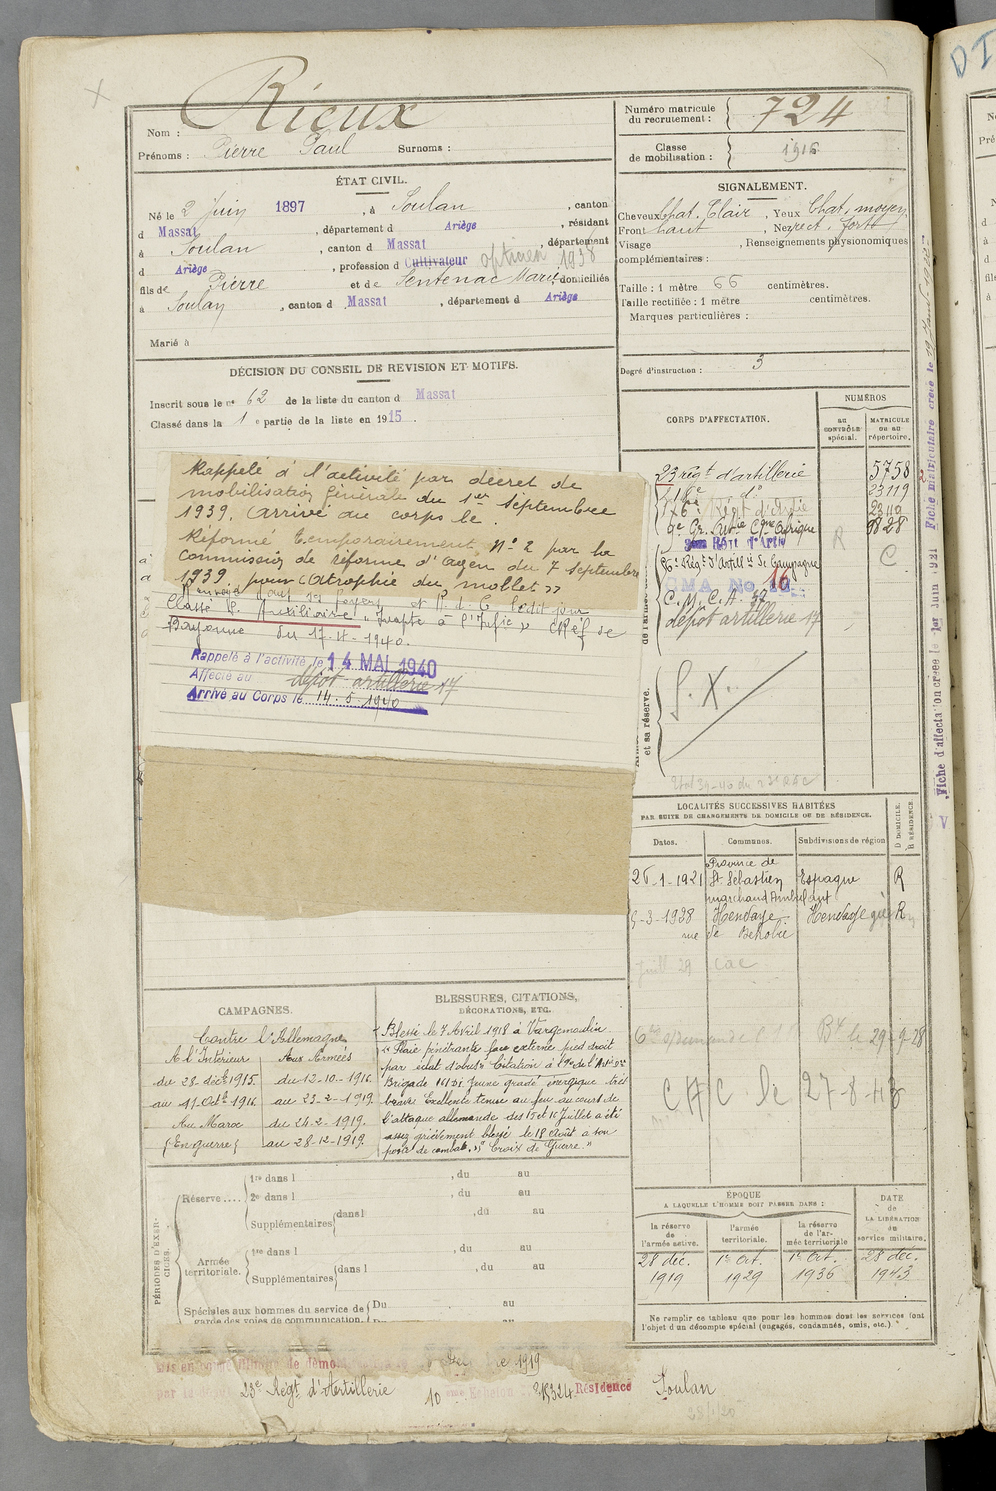 Rieux
Nom :
Prénoms : Pierre Paul Surnoms :
Numéro matricule
du recrutement : 724
Classe
de mobilisation : 1916
ÉTAT CIVIL.
Né le 2 Juin 1897, à Soulan, canton
d Massat, département d Ariège, résidant
à Soulan, canton d Massat, département
d Ariège, profession d Cultivateur opticien 1938
fils de Pierre et de Sentenac Marie, domiciliés
à Soulan, canton d Massat, département d Ariège
Marié à
SIGNALEMENT.
Cheveux Chat. Clair, Yeux Chat. moyen
Front haut, Nez rect. fort
Visage, Renseignements physionomiques
complémentaires :
Taille : 1 mètre 66 centimètres.
Taille rectifiée : 1 mètre centimètres.
Marques particulières :
Degré d'instruction : 3
DÉCISION DU CONSEIL DE REVISION ET MOTIFS.
Inscrit sous le n° 62 de la liste du canton d Massat
Classé dans la 1e partie de la liste en 1915.
Rappelé à l'activité par décret de
mobilisation générale du 1er Septembre
1939. Arrivé au corps le.
Réformé temporairement N° 2 par la
commission de réforme d'Agen du 7 Septembre
1939. pour "Atrophie du mollet"
Renvoyé dans ses foyers et R. d. C ledit jour
Classé S. Auxiliaire "Inapte à l'Infie" CRéf de
Bayonne du 17-4-1940.
Rappelé à l'activité le 14 MAI 1940
Affecté au dépôt artillerie 17
Arrivé au Corps le 14.5.1940
CORPS D'AFFECTATION.
NUMÉROS
au
CONTRÔLE
spécial.
MATRICULE
ou au
répertoire.
23 régt d'artillerie 5758
23119
2340
9828
R
C
C.M.A. No 16
dépôt artillerie 17
et sa réserve.
S. X.
LOCALITÉS SUCCESSIVES HABITÉES
PAR SUITE DE CHANGEMENTS DE DOMICILE OU DE RÉSIDENCE.
Dates. Communes. Subdivisions de région
D DOMICILE.
R RÉSIDENCE.
26-1-1921 Province de St Sébastien Espagne R
marchand Ambulant
5-3-1928 Hendaye Hendaye R
rue de Béhobie
CAC le 27-8-43
CAMPAGNES.
Contre l'Allemagne
A l'Intérieur Aux Armées
du 28 déc. 1915. du 12-10-1916.
au 11 Octb. 1916. au 23-2-1919.
Au Maroc du 24-2-1919.
{En guerre} au 28-12-1919.
BLESSURES, CITATIONS,
DÉCORATIONS, ETC.
Blessé le 7 Avril 1918 à Vargemoulin
"Plaie pénétrante face externe pied droit
par éclat d'obus" Citation à l'O de l'Artie
Brigade 161 DI Jeune gradé énergique très
brave Excellente tenue au feu au cours de
l'attaque allemande des 15 et 16 Juillet a été
assez grièvement blessé le 18 Août à son
poste de combat." "Croix de Guerre."
PÉRIODES D'EXERCICES.
Réserve....
1re dans l , du au
2e dans l , du au
Supplémentaires dans l , du au
Armée
territoriale.
1re dans l , du au
Supplémentaires dans l , du au
Spéciales aux hommes du service de
garde des voies de communication.
Du au
ÉPOQUE
A LAQUELLE L'HOMME DOIT PASSER DANS :
la réserve
de
l'armée active.
l'armée
territoriale.
la réserve
de l'armée territoriale
DATE
de
LA LIBÉRATION
du
service militaire.
28 déc. 1919
1er Oct. 1929
1er Oct. 1936
28 déc. 1943
Ne remplir ce tableau que pour les hommes dont les services font
l'objet d'un décompte spécial (engagés, condamnés, omis, etc.)
23e Régt d'Artillerie 10 Échelon Résidence Soulan